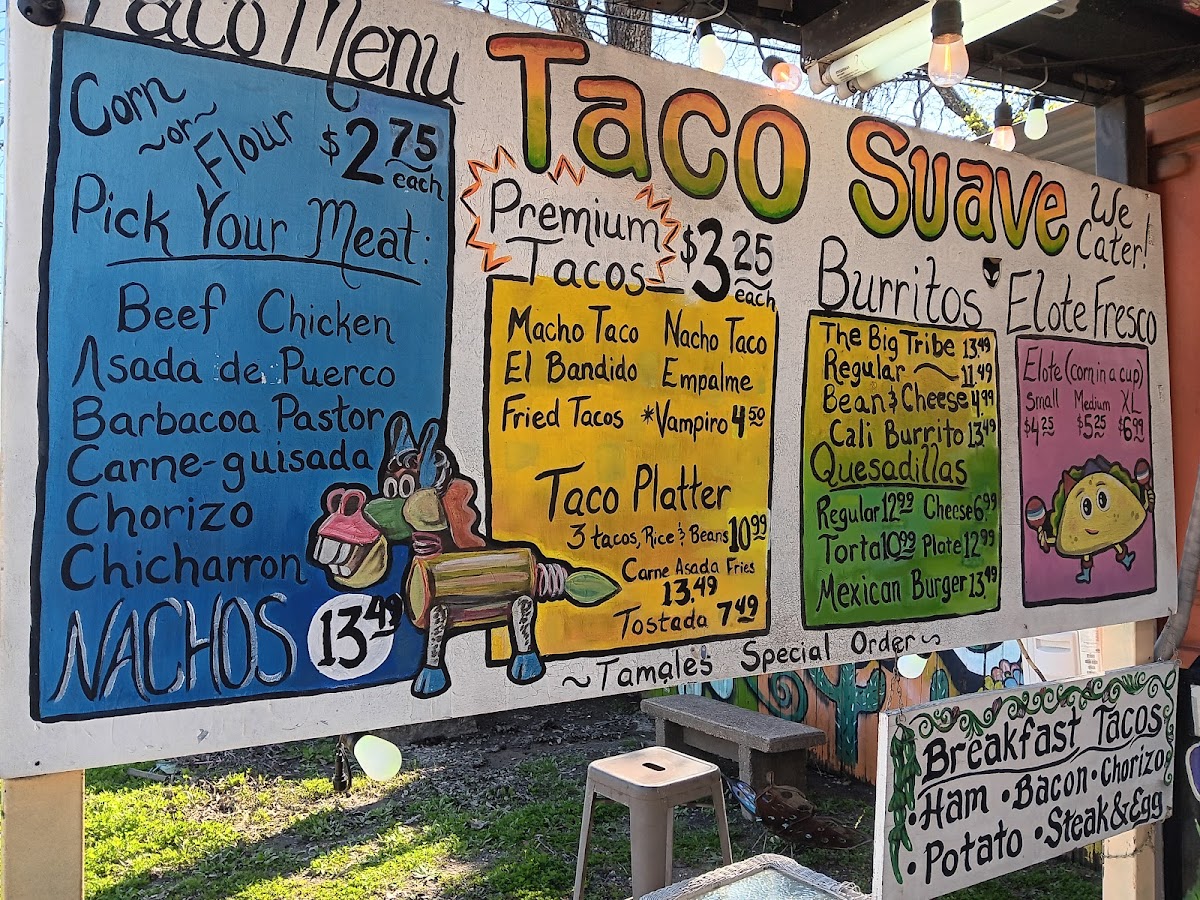 Taco Menu
Corn
~or~
Flour
$2.75
each
Pick Your Meat:
Beef Chicken
Asada de Puerco
Barbacoa Pastor
Carne-guisada
Chorizo
Chicharron
NACHOS 13.49
Taco Suave
We
Cater!
Premium
Tacos
$3.25
each
Macho Taco Nacho Taco
El Bandido Empalme
Fried Tacos *Vampiro 4.50
Taco Platter
3 tacos, Rice & Beans 10.99
Carne Asada Fries
13.49
Tostada 7.49
Burritos
The Big Tribe 13.49
Regular ~ 11.49
Bean & Cheese 4.99
Cali Burrito 13.49
Quesadillas
Regular 12.99 Cheese 6.99
Torta 10.99 Plate 12.99
Mexican Burger 13.49
Elote Fresco
Elote (corn in a cup)
Small Medium XL
$4.25 $5.25 $6.99
~Tamales Special Order~
Breakfast Tacos
•Ham •Bacon•Chorizo
•Potato •Steak&Egg